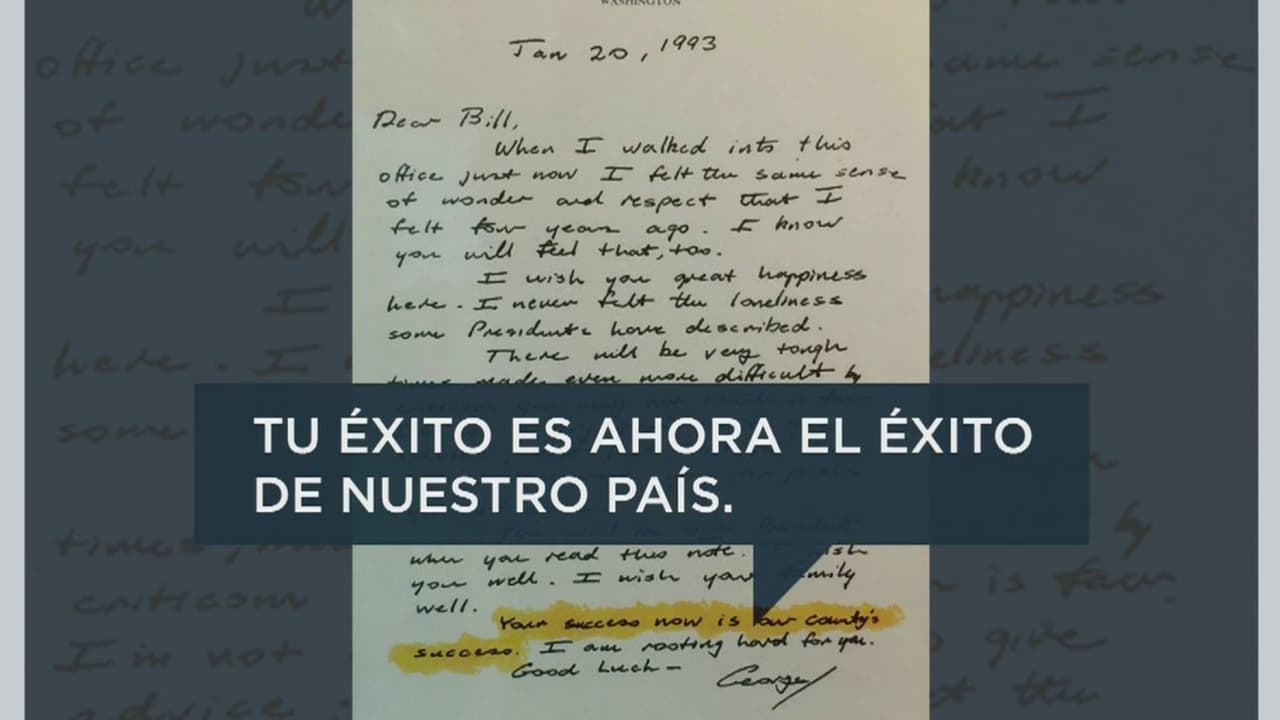 WASHINGTON
Jan 20, 1993
Dear Bill,
When I walked into this
office just now I felt the same sense
of wonder and respect that I
felt four years ago. I know
you will feel that, too.
I wish you great happiness
here. I never felt the loneliness
some Presidents have described.
There will be very tough
times, made even more difficult by
TU ÉXITO ES AHORA EL ÉXITO
DE NUESTRO PAÍS.
when you read this note. I wish
you well. I wish your family
well.
Your success now is our county's
success. I am rooting hard for you.
Good Luck —
George